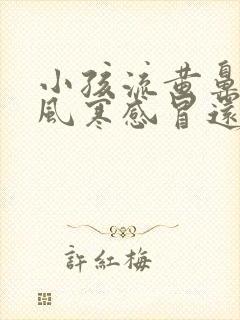 小孩流黄鼻
風寒感冒還
許紅梅